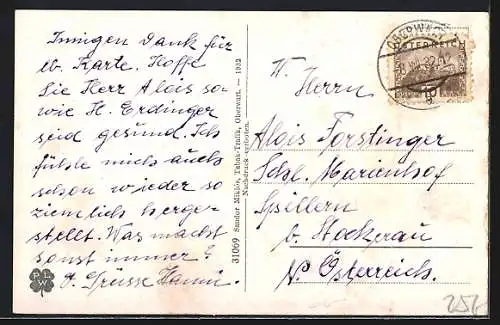 Innigen Dank für
lb. Karte. Hoffe
Sie Herr Alois so-
wie H. Erdinger
seid gesund. Ich
fühle mich auch
schon wieder so
ziemlich herge-
stellt. Was machst
sonst immer?
G. Grüsse Hanni.
P L W
31069 Sandor Miklós, Tabak-Trafik, Oberwart. — 1932
Nachdruck verboten.
OBERWART
ÖSTERREICH
H. Herrn
Alois Forstinger
Schl. Marienhof
Spillern
b. Stockerau
N. Österreich.
254